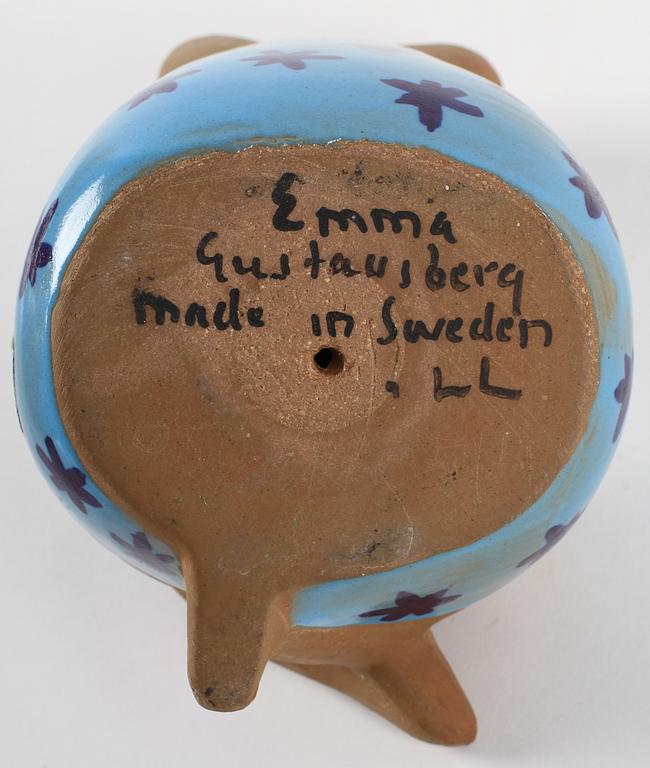 Emma
Gustavsberg
made in Sweden
. LL